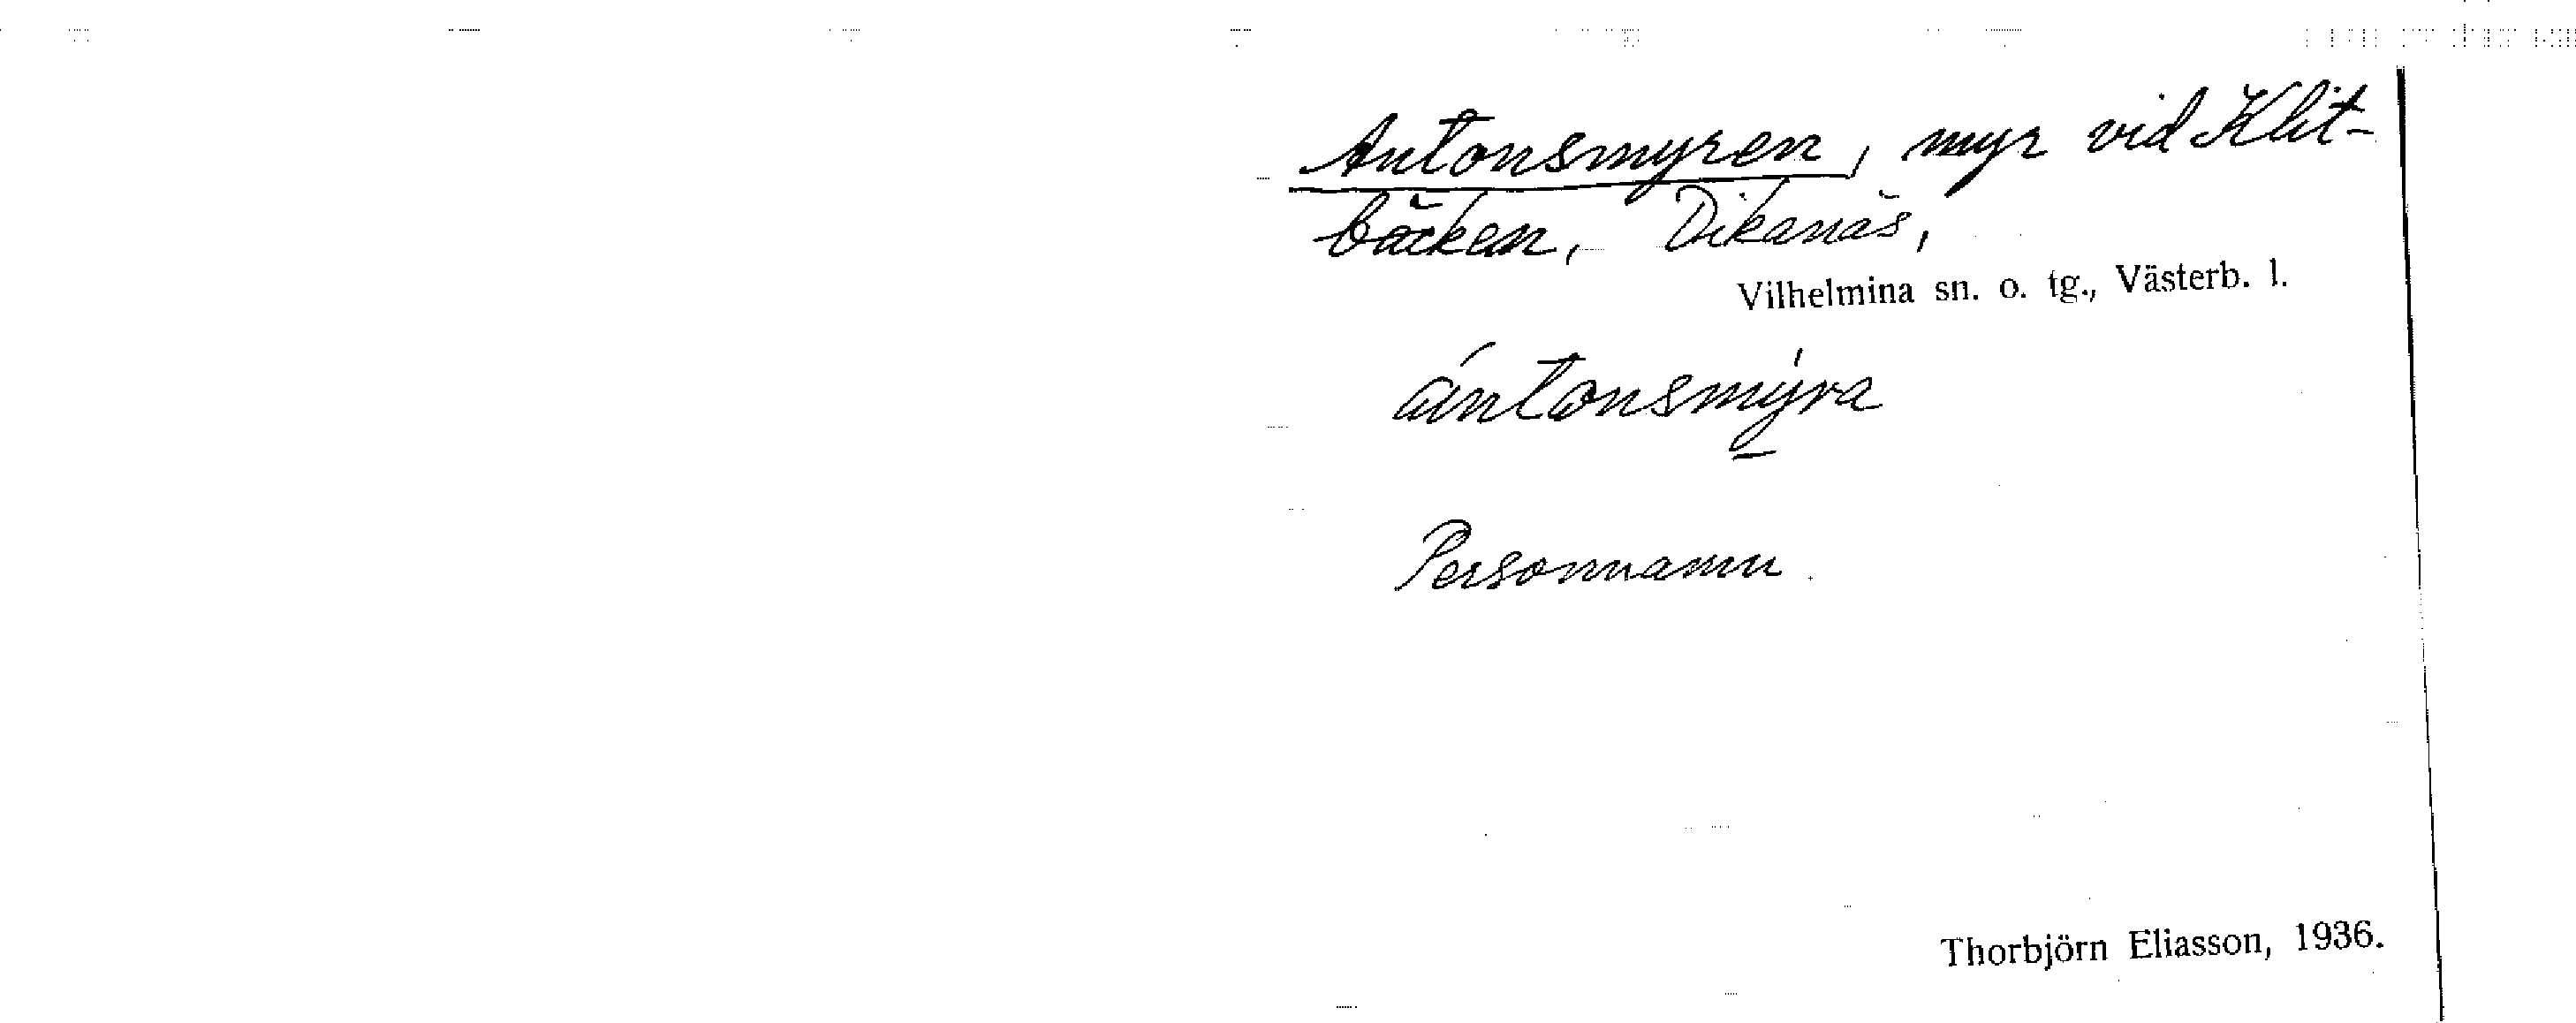 Antonsmyren, myr vid Klit-
bäcken, Dikanäs,
Vilhelmina sn. o. tg., Västerb. l.
ántonsmýra
Personnamn.
Thorbjörn Eliasson, 1936.